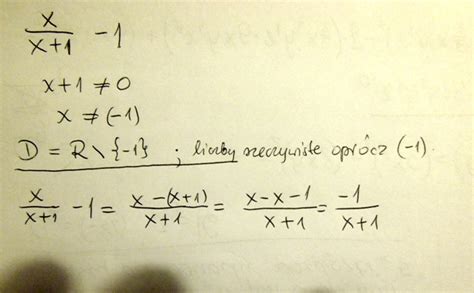 x/(x+1) - 1
x+1 ≠ 0
x ≠ (-1)
D = R \ {-1} ; liczby rzeczywiste oprócz (-1).
x/(x+1) - 1 = (x-(x+1))/(x+1) = (x-x-1)/(x+1) = -1/(x+1)